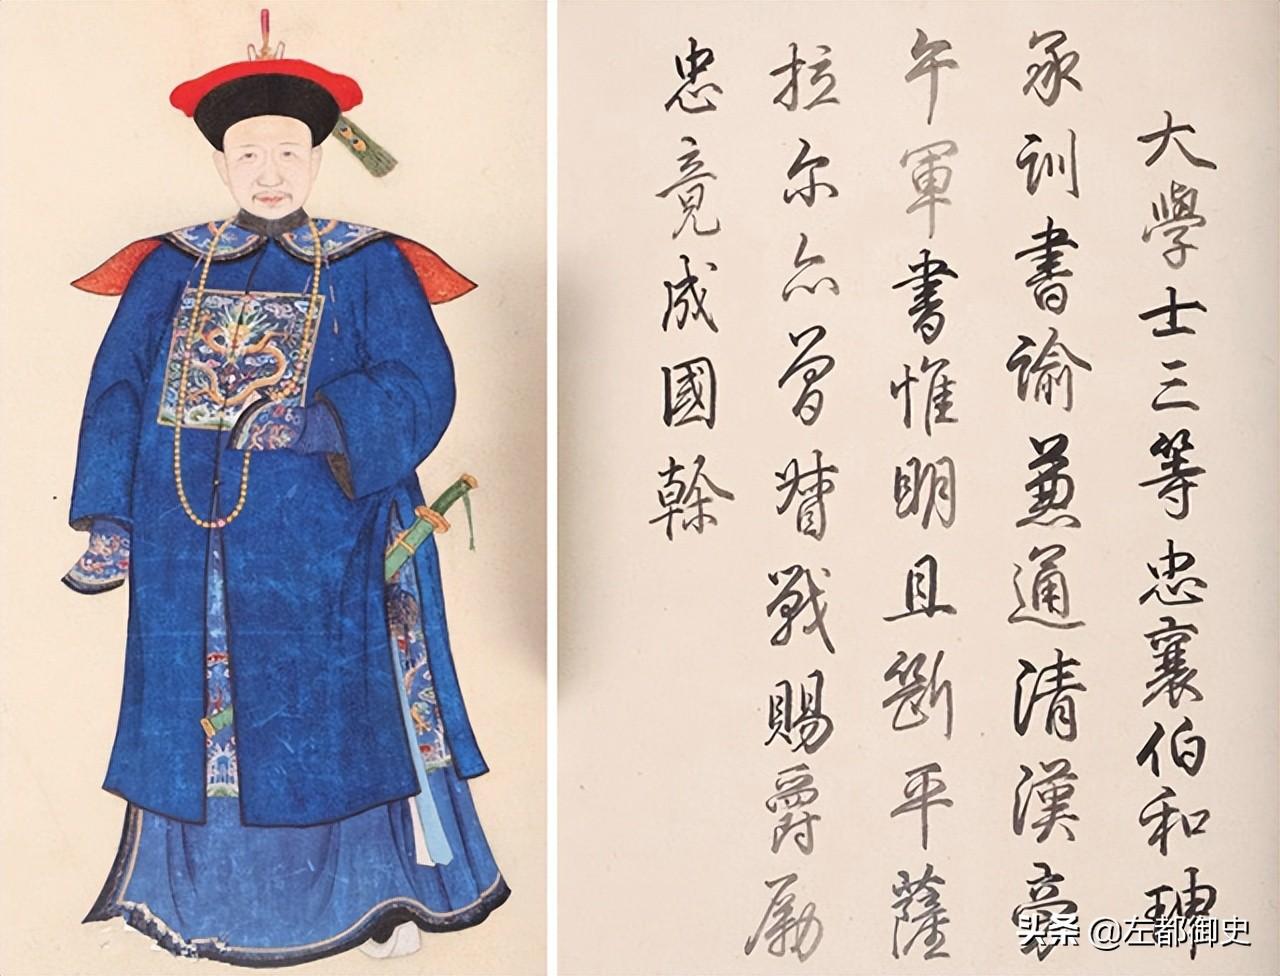 大學士三等忠襄伯和珅
承訓書諭兼通清漢旁
午軍書惟明且斷平薩
拉尔亦曾督戰賜爵勵
忠竟成國榦
头条 @左都御史